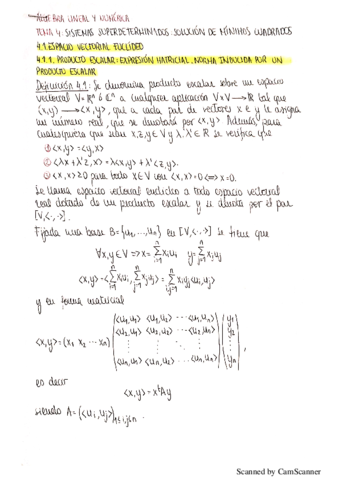 ÁLGEBRA LINEAL Y NUMÉRICA
TEMA 4. SISTEMAS SUPERDETERMINADOS. SOLUCIÓN DE MÍNIMOS CUADRADOS
4.1. ESPACIO VECTORIAL EUCLÍDEO
4.1.1. PRODUCTO ESCALAR: EXPRESIÓN MATRICIAL, NORMA INDUCIDA POR UN
PRODUCTO ESCALAR
Definición 4.1: Se denomina producto escalar sobre un espacio
vectorial V=ℝⁿ ó ℂⁿ a cualquier aplicación V×V → ℝ tal que
(x,y) → <x,y>, que a cada par de vectores x e y le asigna
un número real, que se denotará por <x,y>. Además, para
cualesquiera que sean x,z,y∈V y λ, λ'∈ℝ se verifica que
① <x,y> = <y,x>
② <λx + λ'z, y> = λ<x,y> + λ'<z,y>.
③ <x,x> ≥ 0 para todo x∈V con <x,x> = 0 ⟺ x=0.
Se llama espacio vectorial euclídeo a todo espacio vectorial
real dotado de un producto escalar y se denota por el par
[V,<·,·>].
Fijada una base B={u₁,...,uₙ} de [V,<·,·>] se tiene que
∀x,y∈V ⟹ x = Σⁿᵢ₌₁ xᵢuᵢ y = Σⁿⱼ₌₁ xⱼuⱼ
<x,y> = <Σⁿᵢ₌₁ xᵢuᵢ, Σⁿⱼ₌₁ xⱼyⱼ> = Σⁿᵢ,ⱼ₌₁ xᵢyⱼ<uᵢ,uⱼ>
y en forma matricial
<u₁,u₁> <u₁,u₂> ··· <u₁,uₙ> y₁
<u₂,u₁> <u₂,u₂> ··· <u₂,uₙ> y₂
<x,y> = (x₁ x₂ ··· xₙ) ⋮ ⋮ ⋱ ⋮ ⋮
<uₙ,u₁> <uₙ,u₂> ··· <uₙ,uₙ> yₙ
es decir
<x,y> = xᵗAy
siendo A = (<uᵢ,uⱼ>)₁≤i,j≤n.
Scanned by CamScanner